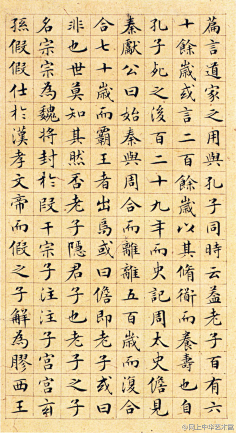 篇言道家之用與孔子同時云蓋老子百有六
十餘歲或言二百餘歲以其脩衜而養壽也自
孔子死之後百二十九年而史記周太史儋見
秦獻公曰始秦與周合而離離五百歲而復合
合七十歲而霸王者出焉或曰儋即老子或曰
非也世莫知其然否老子隱君子也老子之子
名宗宗為魏將封於段干宗子注注子宮宮玄
孫假假仕於漢孝文帝而假之子解為膠西王
@网上中华艺术馆